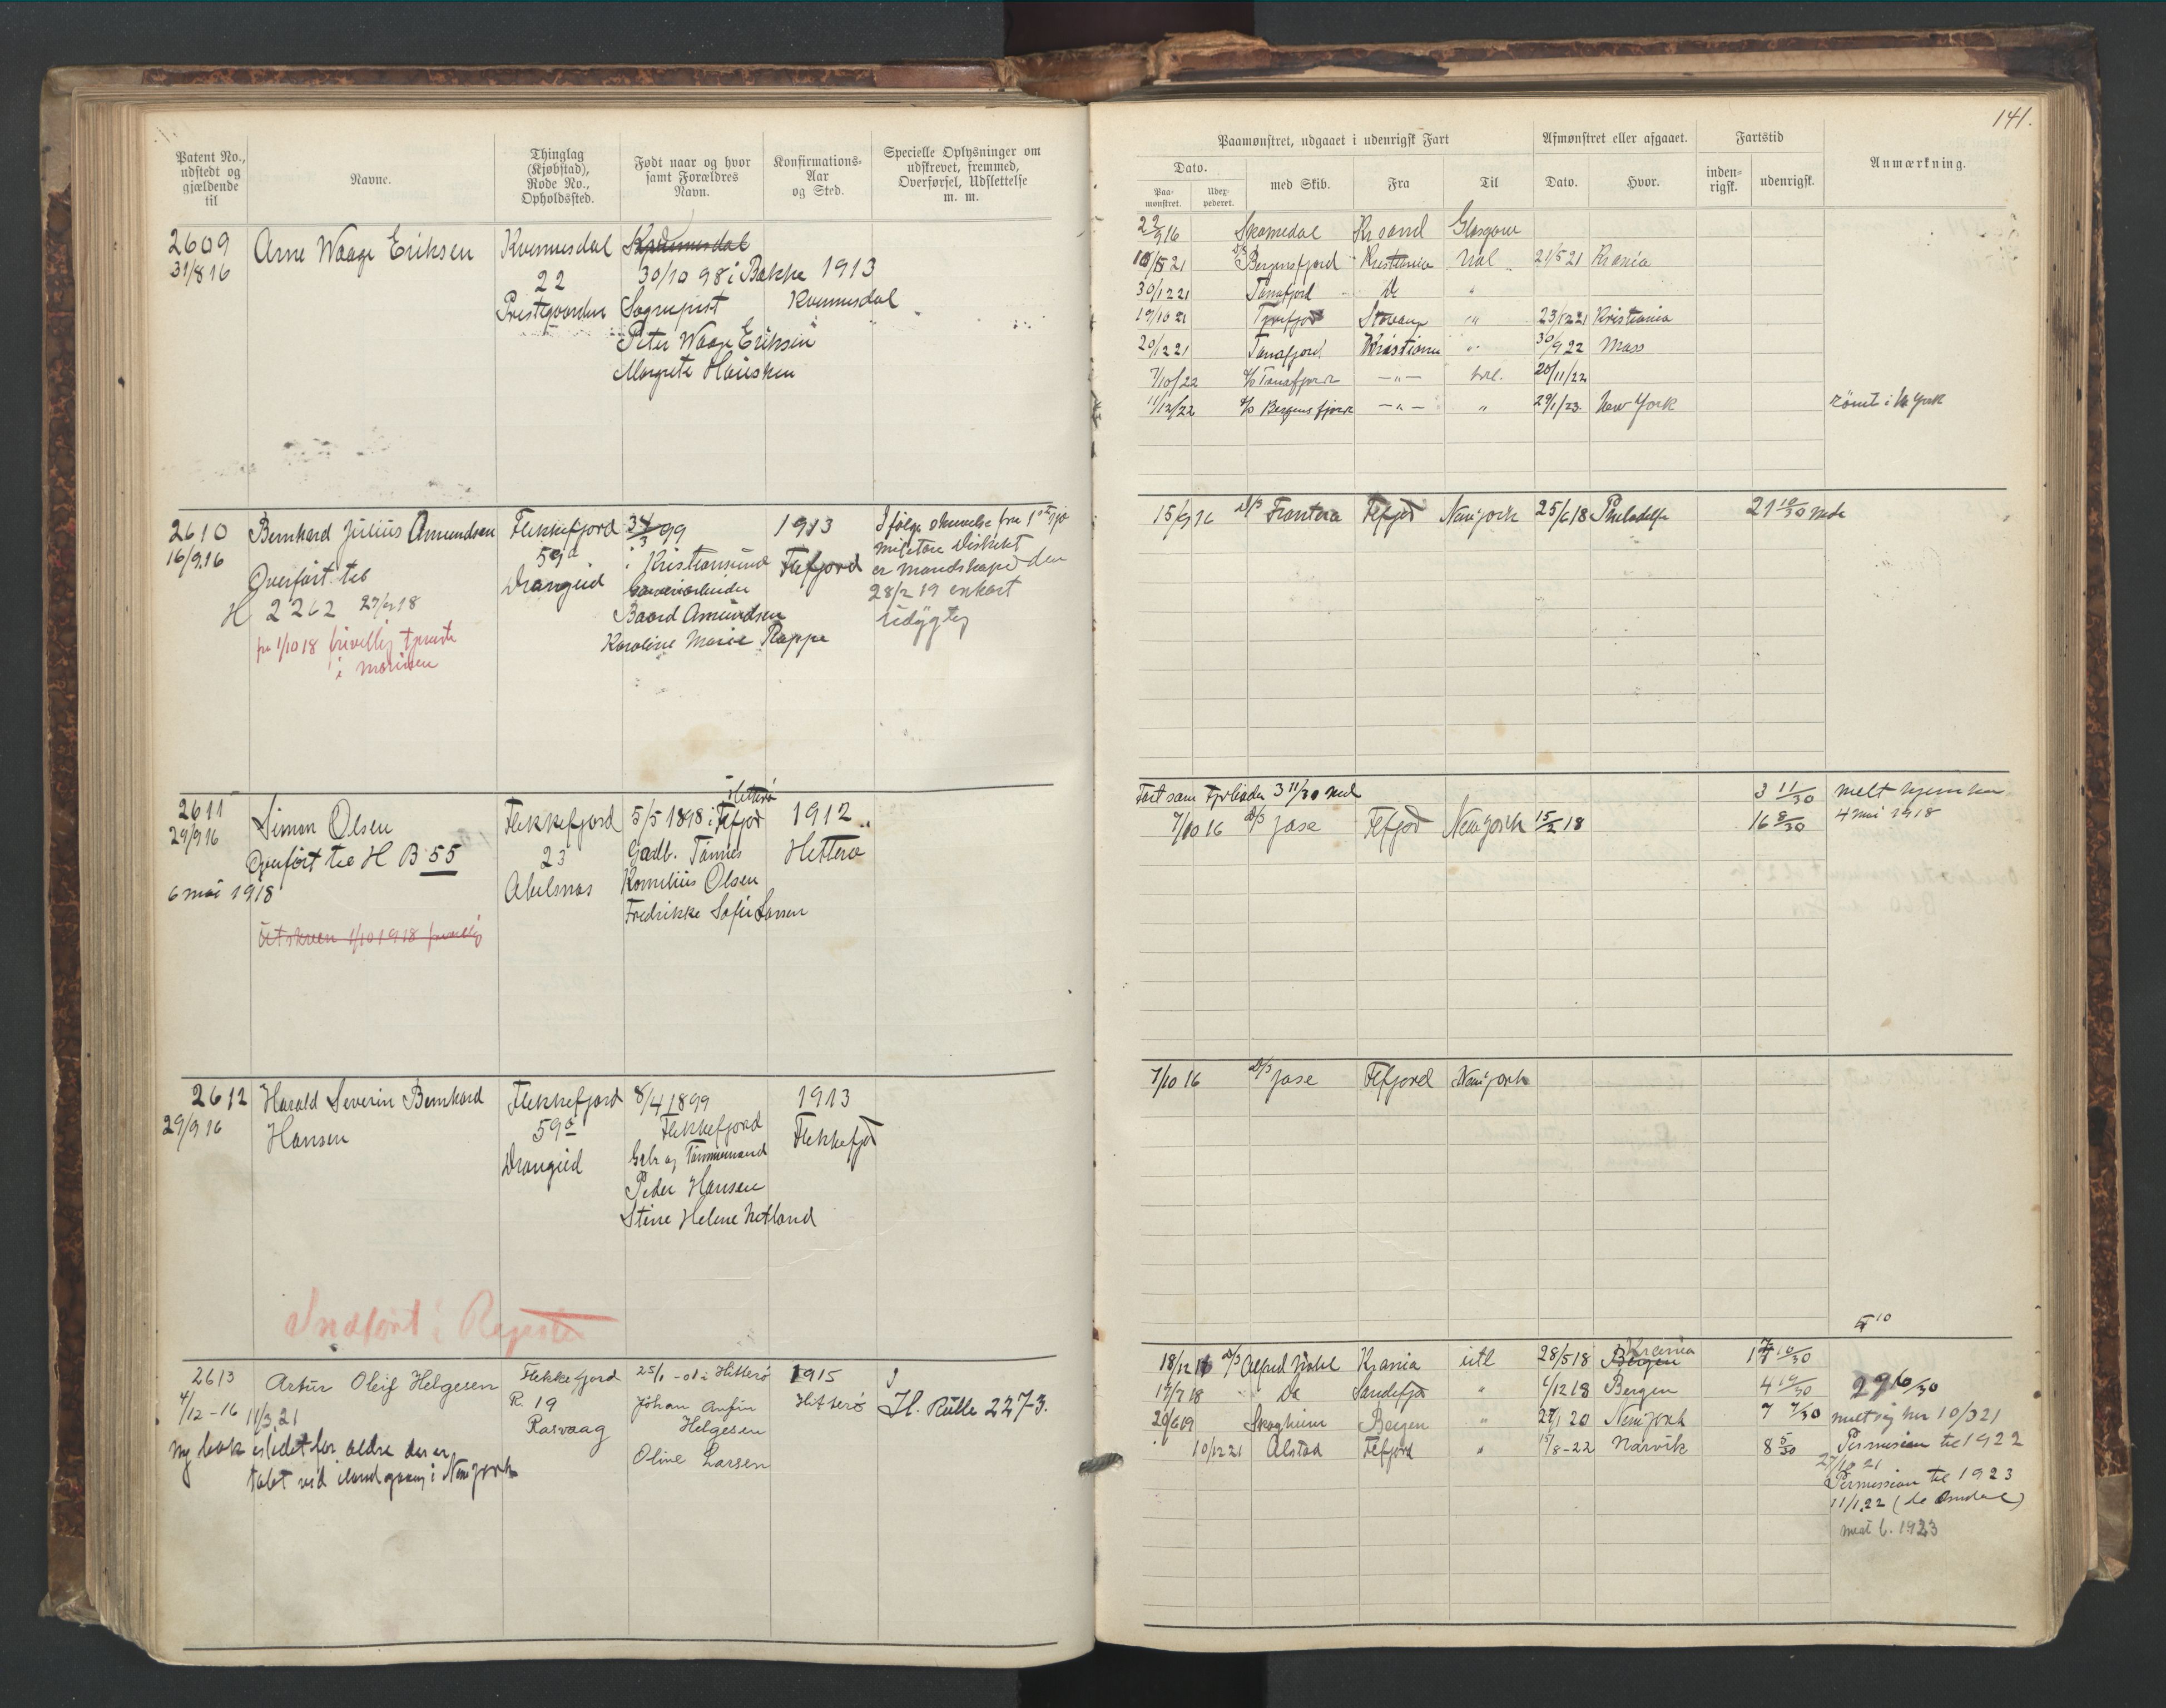 141.
Patent No., udstedt og gjældende til
Navne.
Thinglag (Kjøbstad), Rode No., Opholdssted.
Født naar og hvor samt Forældres Navn.
Konfirmations-Aar og Sted.
Specielle Oplysninger om udskrevet, fremmed, Overførsel, Udslettelse m. m.
Paamønstret, udgaaet i udenrigsk Fart
Afmønstret eller afgaaet.
Fartstid
Anmærkning.
Dato.
med Skib.
Fra
Til
Dato.
Hvor.
inden-rigsk.
udenrigsk.
Paa-monstret.
Udex-pederet.
2609
31/8 16
Arne Waage Eriksen
Kvennesdal
22
Prestegaarden
30/10 98 i Bakke
Sogneprest
Peter Waage Eriksen
Margrete Hausken
1913
Kvinnesdal
2/9 16 Skomedal Krsand Glasgow
18/5 21 D/S Bergensfjord Kristiania 21/5 21 Krania
30/12 21 Tanafjord Do "
19/10 21 Stavang " 23/12 21 Kristiania
20/12 21 Tanafjord Kristiania " 30/9 22 Moss
7/10/22 Tanafjord —"— utl. 20/11/22
11/12/22 Bergensfjord —"— " 29/1/23. New York
rømt i N York
2610
16/9.16
Bernhard Julius Amundsen
Overført til
H 2262 27/6 18
fra 1/10 18 frivillig tjeneste
i marinen
Flekkefjord
59a
Drangeid
99
i Kristiansund
Garveriarbeider
Baard Amundsen
Karoline Marie Rappe
1913
Flefjord
Ifølge skrivelse fra 1ste sjø
militære Distrikt
er mandskapet den
28/2 19 erklært
udygtig
15/9 16 D/S Frontera Flefjord Newjork 25/6 18 Philadelf 21 10/30 mdr
2611
29/9 16
Simon Olsen
Overført til H B 55
6 mai 1918
Utskreven 1/10 1918 frivillig
Flekkefjord
23
Abelsnes
Hitterø
5/5 1898 i Flefjord
Gadb. Tønnes
Kornelius Olsen
Fredrikke Sofie Larsen
1912
Hitterø
Fart som Fyrbøder 3 11/30 md 3 11/30
7/10 16 D/S Jase Flefjord Newjork 15/2 18 16 8/30
melt hjemkom
4 mai 1918
2612
29/9 16
Harald Severin Bernhard
Hansen
Flekkefjord
59a
Drangeid
8/4 1899
Flekkefjord
Gbr og Tømmermand
Peder Hansen
Stine Helene Netland
1913
Flekkefjd
7/10 16 D/S Jase Flefjord Newjork
Indført i Register
2613
4/12-16 11/3 21
Artur Oleif Helgesen
Ny bok utstedt for ældre der er
tabt ved ilandgaang i Newjork
Flekkefjord
R. 19
Rasvaag
25/1-01 i Hitterø
Johan Anfin
Helgesen
Oline Larsen
1915
Hitterø
H. Rulle 2273.
18/12 16 D/S Alfred Nobel Krania utl 28/5 18 Bergen Krania 17 10/30
17/7 18 Do Sandefjd " 6/12 18 Bergen 4 19/30
20/6 19 Skogheim Bergen " 27/1 20 Newjork 7 7/30
10/12 21 Alstad Flefjord " 15/8-22 Narvik 8 5/30
29 6/30
meltsig her 10/3 21
Permission til 1922
27/10 21
Permission til 1923
11/1.22
melt b. 1923